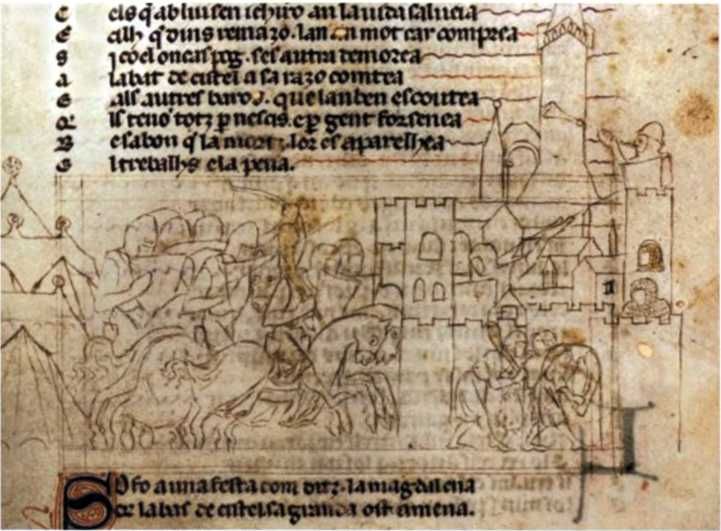 C els q̃ ab lui sen ichiro an la uida salueia
E cilh q̃ dins remazo. lan an mot car compreia
S i co el oncas pog. ses autra demorea
A labat de cistel a sa razo comtea
E als autres baros. que lan ben escoutea
Q ils teno totz p nescis. e p gent forsenea
B e sabon q̃ la mort. lor es aparelhea
E l trebalhs e la pena.
So fo a una festa com ditz. la magdalena
Que labas de cistel sa granda ost amena.